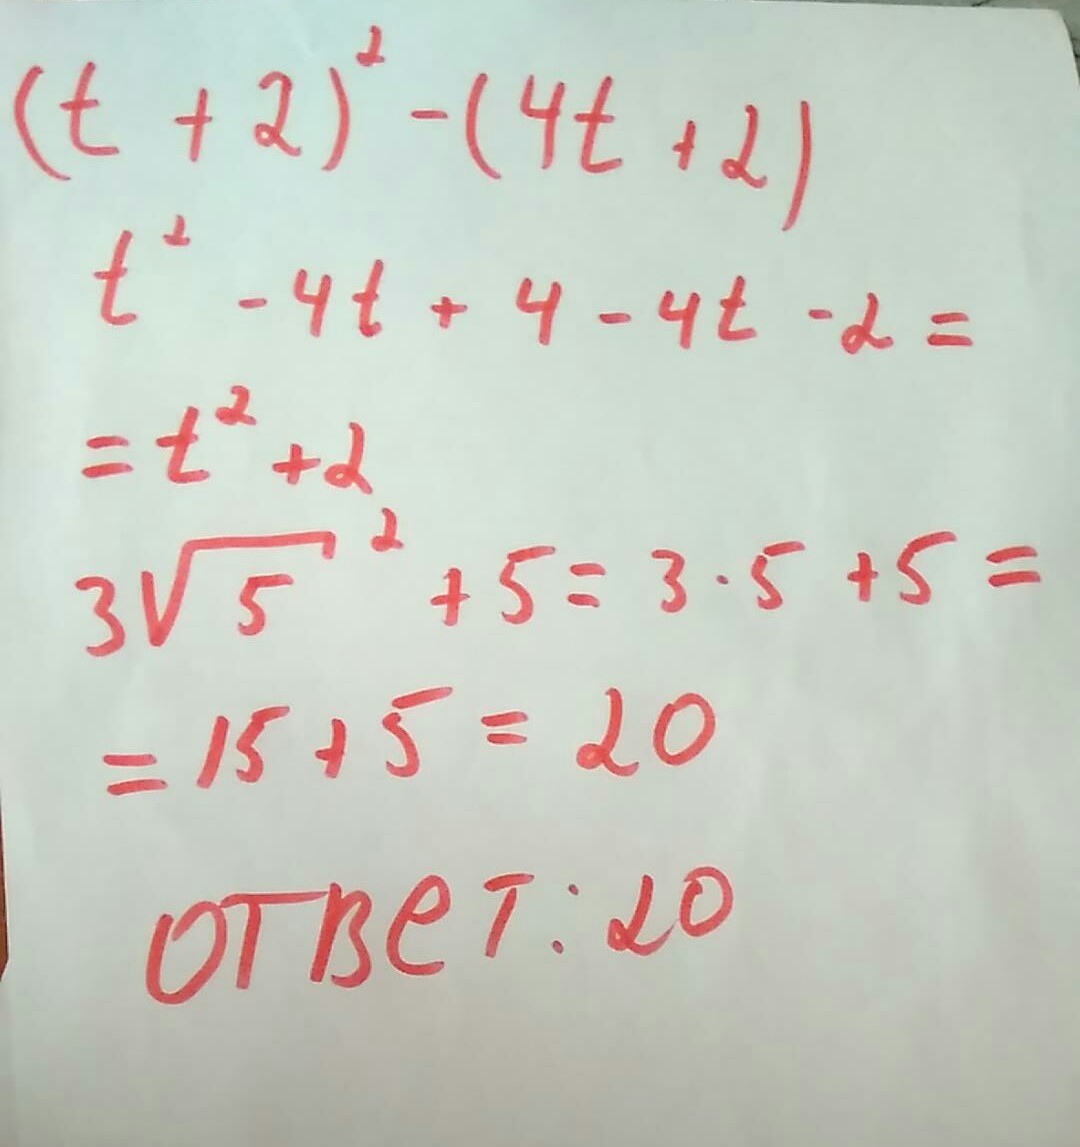 (t + 2)² - (4t + 2)
t² - 4t + 4 - 4t - 2 =
= t² + 2
3√5² + 5 = 3 · 5 + 5 =
= 15 + 5 = 20
ОТВЕТ: 20